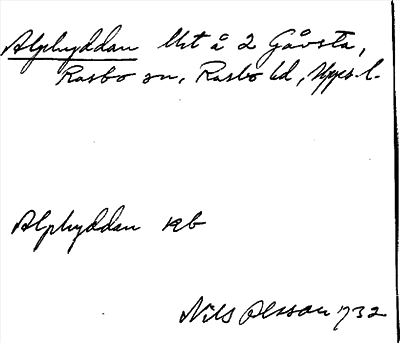 Alphyddan Ut å 2 Gåvsta,
Rasbo sn, Rasbo hd, Upps. l.
Alphyddan
Nils Olsson 1732